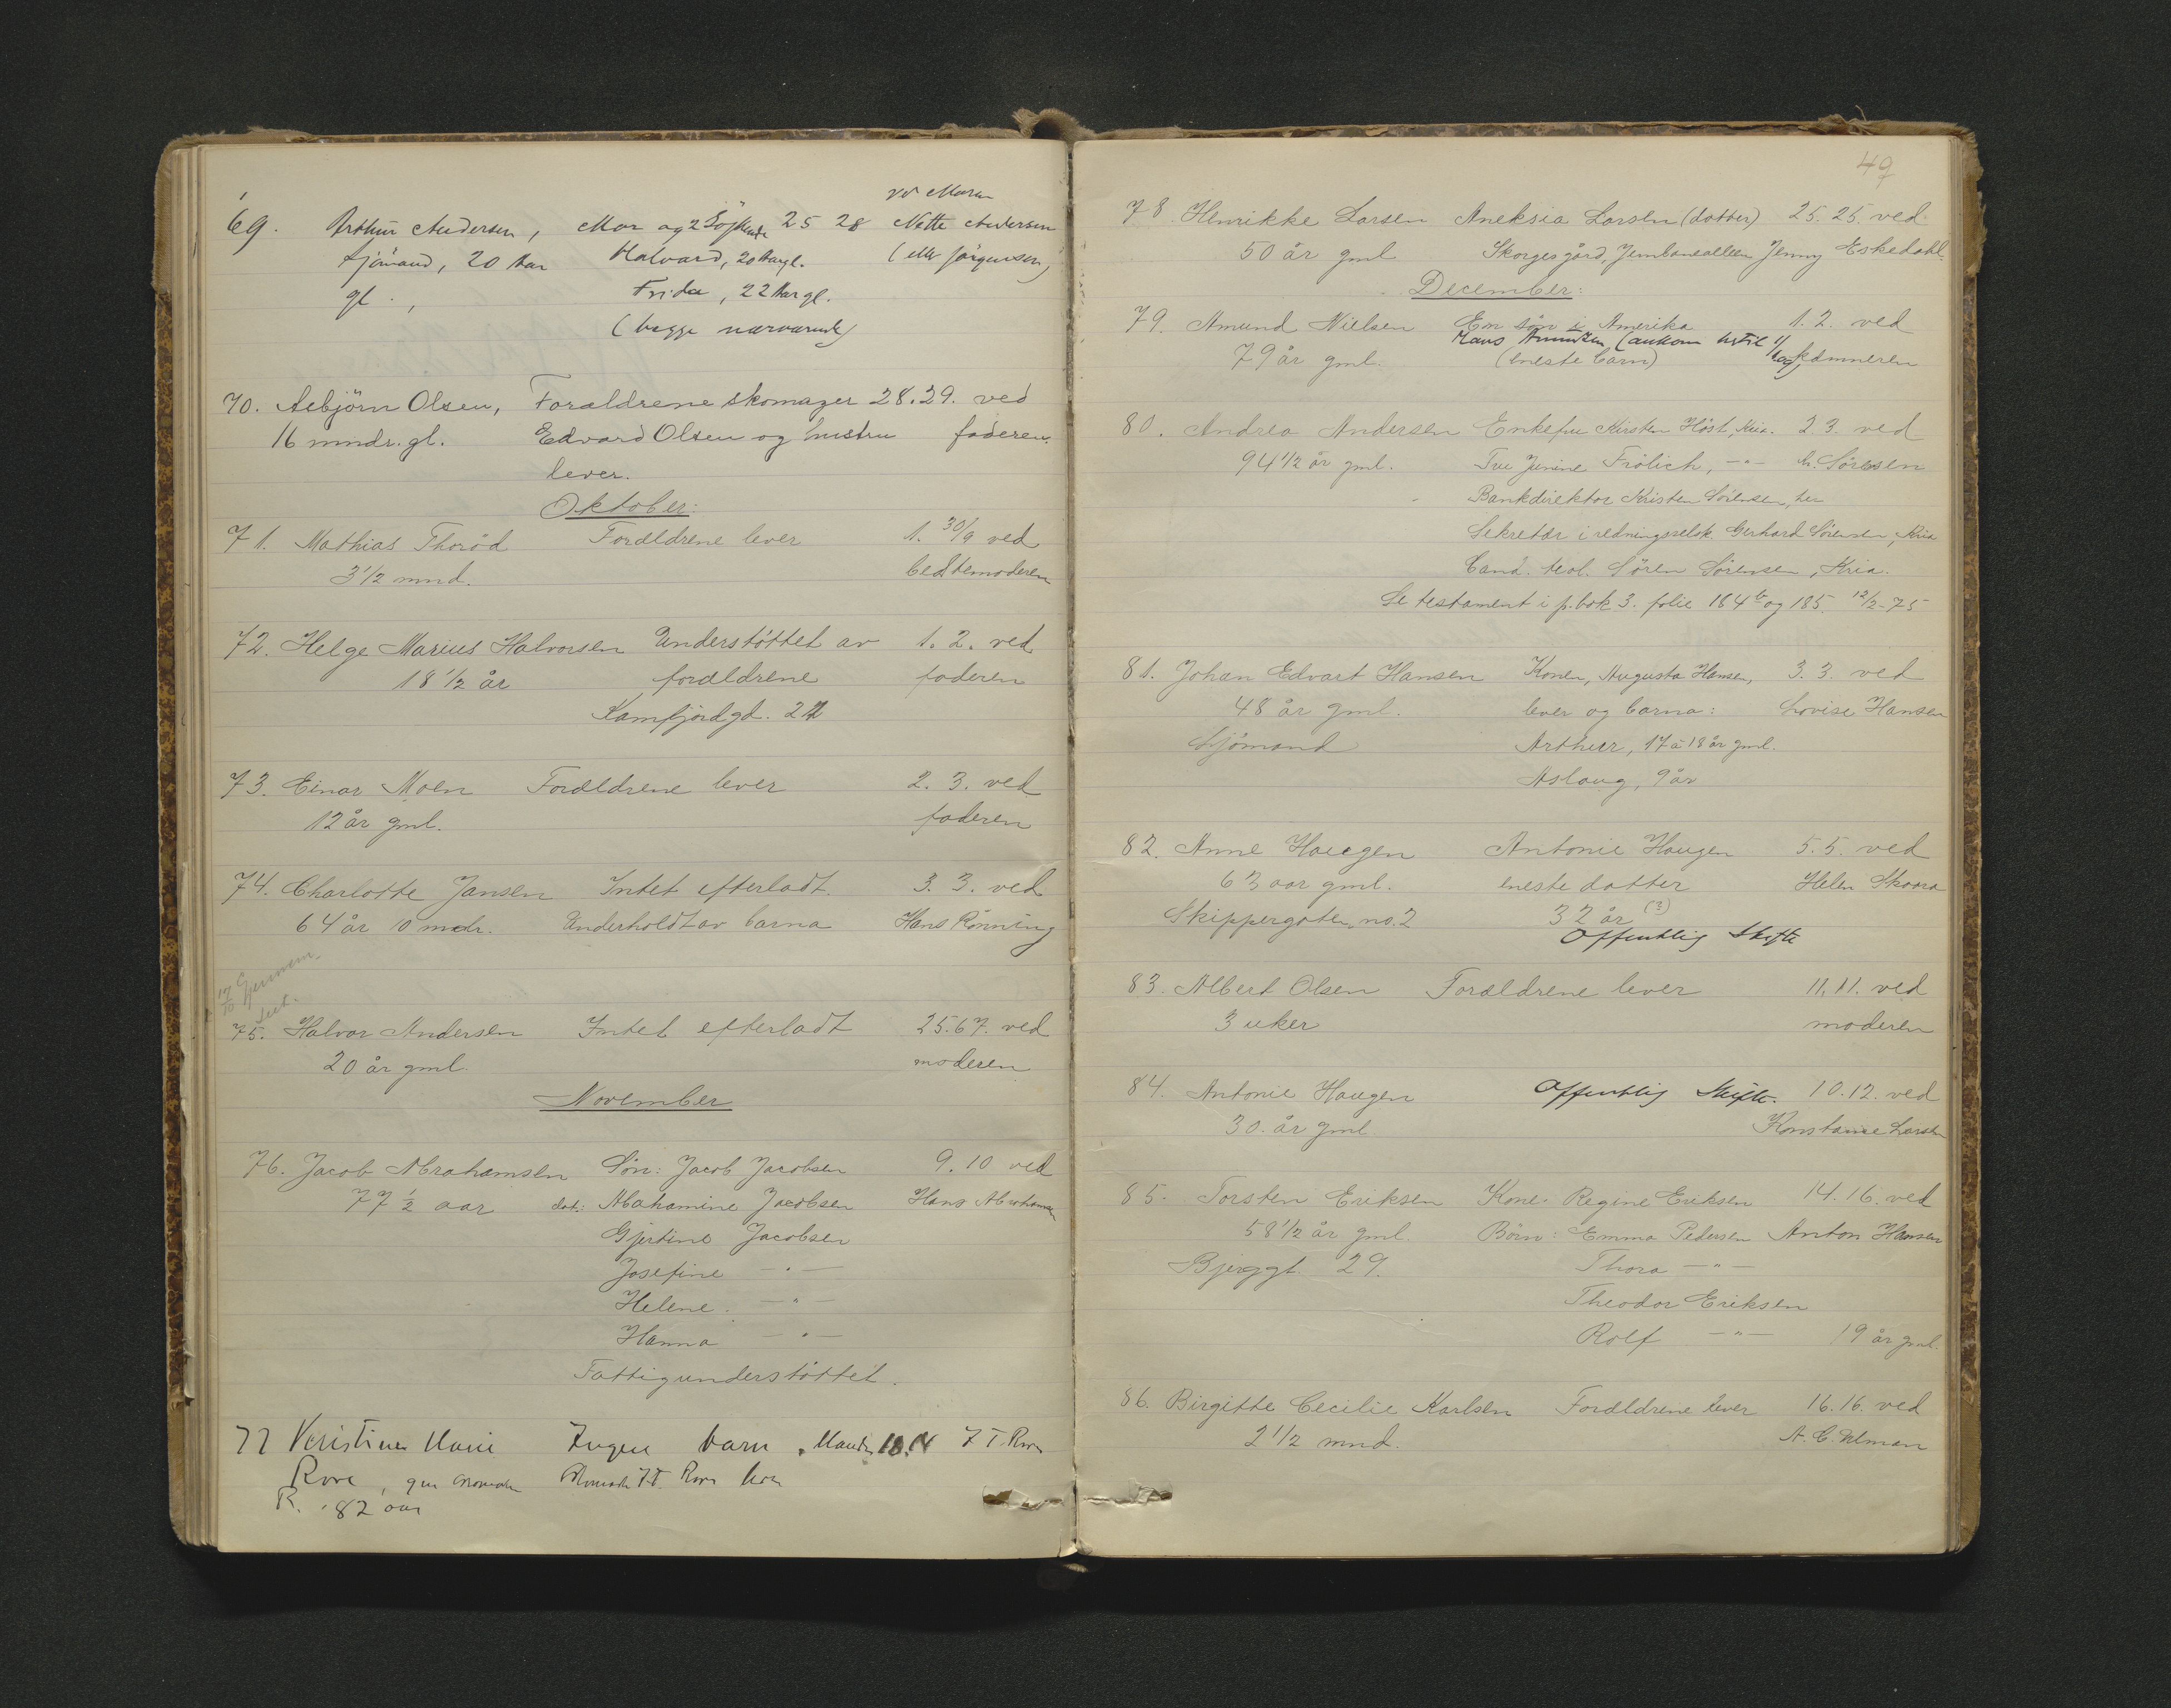 69. Arthur Andersen, Mor og 2 Søskende 25 28 ved Moren
sjömand, 20 Aar Halvard, 20 Aar gl. Nette Andersen
gl. Frida, 22 Aar gl. (eller Jörgensen)
(begge nærværende)
70. Asbjörn Olsen, Forældrene skomager 28. 29. ved
16 mndr. gl. Edvard Olsen og hustru faderen.
lever.
Oktober:
71. Mathias Thoröd Forældrene lever 1. 30/9 ved
3 1/2 mnd. bedstemoderen
72. Helge Marius Halvorsen Understöttet av 1. 2. ved
18 1/2 år forældrene faderen
Kamfjordgd.
73. Einar Moen Forældrene lever 2. 3. ved
12 år gml. faderen
74. Charlotte Jansen Intet efterladt. 3. 3. ved
64 år 10 mndr. Underholdt av barna Hans Rönning
17/10 Gjennem
75. Halvor Andersen Intet efterladt 25. 67. ved
20 år gml. moderen
November
76. Jacob Abrahamsen Sön: Jacob Jacobsen 9. 10 ved
77 1/2 aar dat: Abahamine Jacobsen Hans Abrahamsen
Gjertine Jacobsen
Josefine — " —
Helene. — " —
Hanna — " —
Fattigunderstöttet.
77 Kristine Marie Ingen barn. Manden 10. 7 T. Rove
Rove, T. Rove
R. 82 aar
49
78 Henrikke Larsen Aneksia Larsen (datter) 25. 25. ved
50 år gml Skorgesgård, Jernbanealleen Jenny Eskedahl.
December:
79. Amund Nielsen En sön i Amerika 1. 2. ved
Hans Amundsen (ankom hertil
79 år gml. (eneste barn) kæmneren
80. Andrea Andersen Enkefru Kirsten Höst, Kria. 2. 3. ved
94 1/2 år gml. Fru Jenine Frölich, — " — hr. Sörensen
Bankdirektör Kristen Sörensen, her
Sekretær i redningsselsk. Gerhard Sörensen, Kria
Cand. teol. Sören Sörensen, Kria.
Se testament i p.bok 3. folie 184 b og 185. 12/2-75
81. Johan Edvart Hansen Konen, Augusta Hansen, 3. 3. ved
48 år gml. lever og barna: Lovise Hansen
Sjömand Arthur, 17 à 18 år gml.
Aslaug, 9 år
82. Anne Haugen Antonie Haugen 5. 5. ved
63 aar gml. eneste datter Helen Skaara
Skippergaten no. 2 32 år (?)
Offentlig Skifte
83. Albert Olsen Forældrene lever 11. 11. ved
3 uker moderen
84. Antonie Haugen Offentlig Skifte. 10. 12. ved
30. år gml Konstanse Larsen
85. Torsten Eriksen Kone: Regine Eriksen 14. 16. ved
58 1/2 år gml. Börn: Emma Pedersen Anton Hansen
Bjerggt. 29. Thora — " —
Theodor Eriksen
Rolf — " — 19 år gml.
86. Birgitte Cecilie Karlsen Forældrene lever 16. 16. ved
2 1/2 mnd. A. C. Ulman